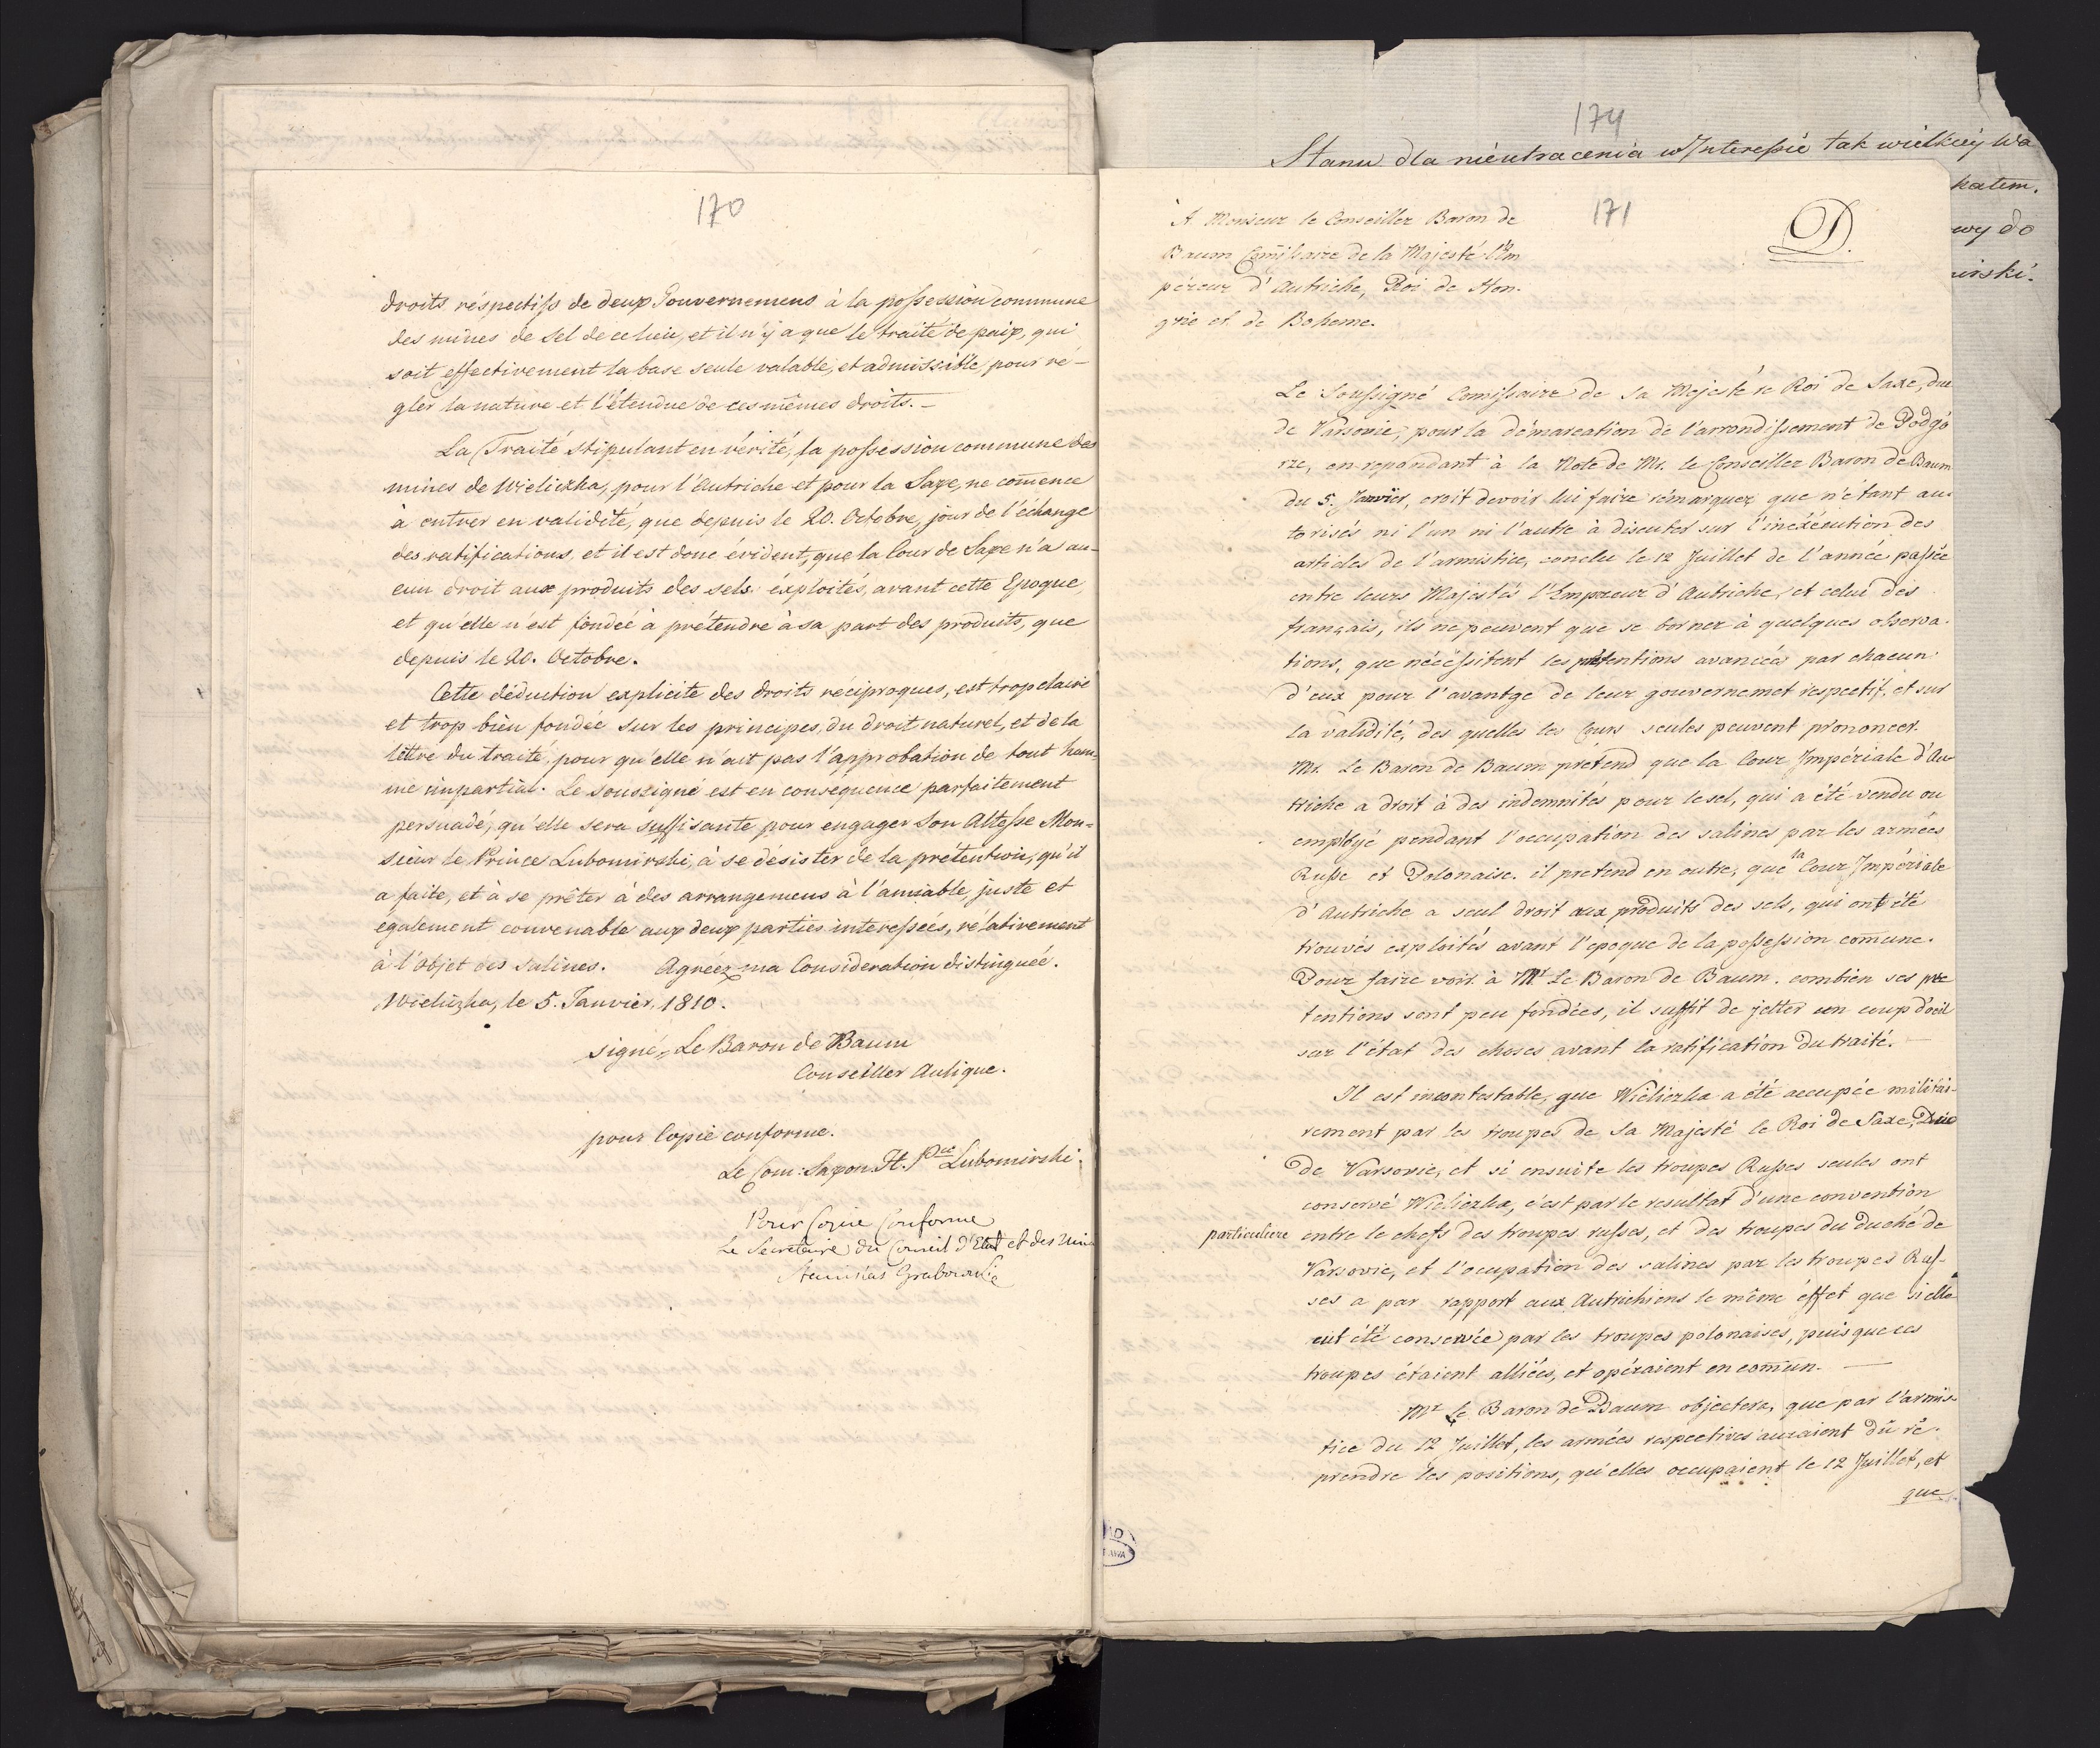 170
droits réspectifs de deux Gouvernemens à la possession commune
des mines de Sel de ce lieu, et il n'y a que le traité de paix, qui
soit effectivement la base seule valable, et admissible, pour ré-
gler la nature et l'étendue de ces mêmes droits. —
La Traité stipulant en vérité, la possession commune des
mines de Wieliczka, pour l'Autriche et pour la Saxe, ne comence
à entrer en validité, que depuis le 20. Octobre, jour de l'échange
des ratifications, et il est donc évident, que la Cour de Saxe n'a au-
cun droit aux produits des sels éxploités, avant cette Epoque,
et qu'elle n'est fondée à prétendre à sa part des produits, que
depuis le 20. Octobre.
Cette déduction explicite des droits réciproques, est trop claire
et trop bien fondée sur les principes, du droit naturel, et de la
lettre du traité, pour qu'elle n'ait pas l'approbation de tout hom-
me impartial. Le souszigné est en consequence parfaitement
persuadé, qu'elle sera suffisante, pour engager Son Altesse Mon-
sieur le Prince Lubomirski, à se désister de la prétention, qu'il
a faite, et à se prêter à des arrangemens à l'amiable, juste et
également convenable aux deux parties interessées, rélativement
à l'objet des salines. Agréez ma Consideration distinguée.
Wieliczka, le 5. Janvier, 1810.
signé, Le Baron de Baum
Conseiller Aulique.
pour Copie conforme.
Le Com: Saxon. H. Pce Lubomirski.
Pour Copie Conforme
Le Secretaire du Conseil d'Etat et des Min
Stanislas Grabowski
174
Stanu dla nieutracenia w Interessie tak wielkiey Wa
katem.
wy do
irski.
171
D.
A Monsieur le Conseiller Baron de
Baum Comissaire de la Majesté l'Em
péreur d'Autriche, Roi de Hon.
grie et de Boheme.
Le Soussigné Comissaire de Sa Majesté le Roi de Saxe, Duc
de Varsovie, pour la démarcation de l'arrondissement de Podgó
rze, en repondant à la Note de Mr. le Conseiller Baron de Baum
du 5. Janvier, croit devoir lui faire rémarquer, que n'étant au-
torisés ni l'un ni l'autre à discuter sur l'inéxécution des
articles de l'armistice, conclu le 12 Juillet de l'année passée
entre leurs Majestés l'Empereur d'Autriche, et celui des
français, ils ne peuvent que se borner à quelques observa.
tions, que nécéssitent les prétentions avancées par chacun
d'eux pour l'avantge de leur gouvernemet respectif, et sur
la validité, des quelles les Cours seules peuvent prononcer.
Mr. Le Baron de Baum prétend que la Cour Impériale d'Au-
triche a droit à des indemnités pour le sel, qui a été vendu ou
employé pendant l'occupation des salines par les armées
Russe et Polonaise. il pretend en outre, que la Cour Impériale
d'Autriche a seul droit aux produits des sels, qui ont été
trouvés exploités avant l'epoque de la possession comune.
Pour faire voir à Mr Le Baron de Baum. combien ses pre
tentions sont peu fondées, il suffit de jetter un coup d'oeil
sur l'état des choses avant la ratification du traité. —
Il est incontestable, que Wieliczka a été accupée militai-
rement par les troupes de Sa Majesté le Roi de Saxe, Duc
de Varsovie, et si ensuite les troupes Russes seules ont
conservé Wieliczka, c'est par le resultat d'une convention
particuliere entre le chefs des troupes russes, et des troupes du duché de
Varsovie, et l'ocupation des salines par les troupes Rus-
ses a par rapport aux Autrichiens le même éffet que si elle
eut été conservée par les troupes polonaises, puisque ces
troupes étaient alliées, et opéraient en comun. —
Mr Le Baron de Baum objectera, que par l'armis-
tice du 12 Juillet, les armées respectives auraient dû re.
prendre les positions, qu'elles occupaient le 12 Juillet, et
que